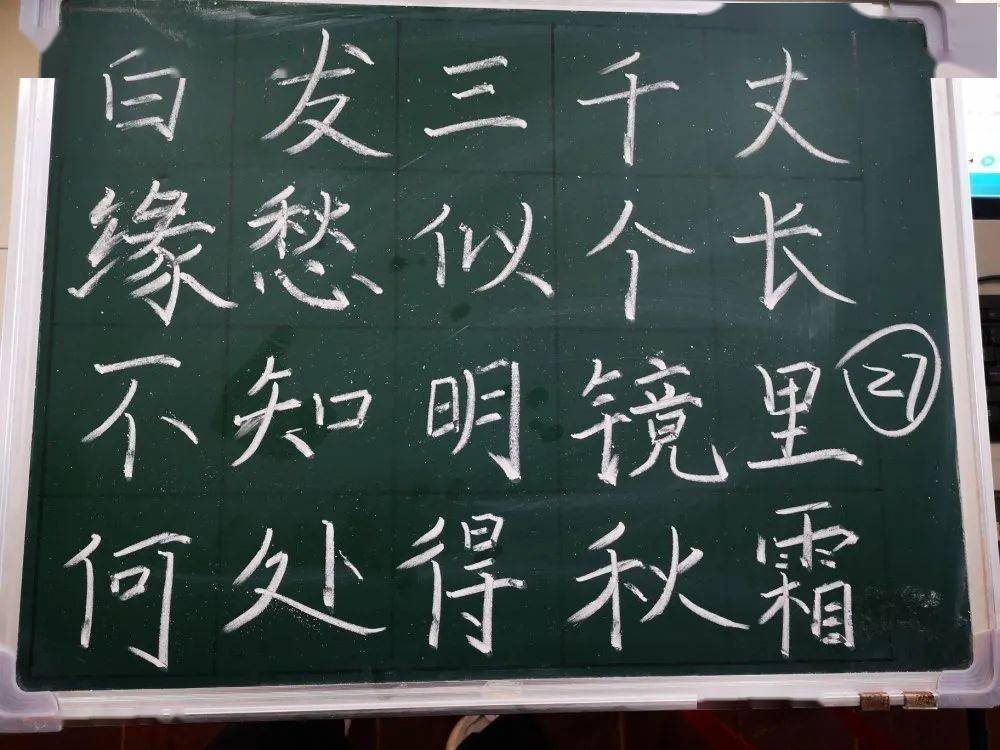 白发三千丈
缘愁似个长
不知明镜里
27
何处得秋霜